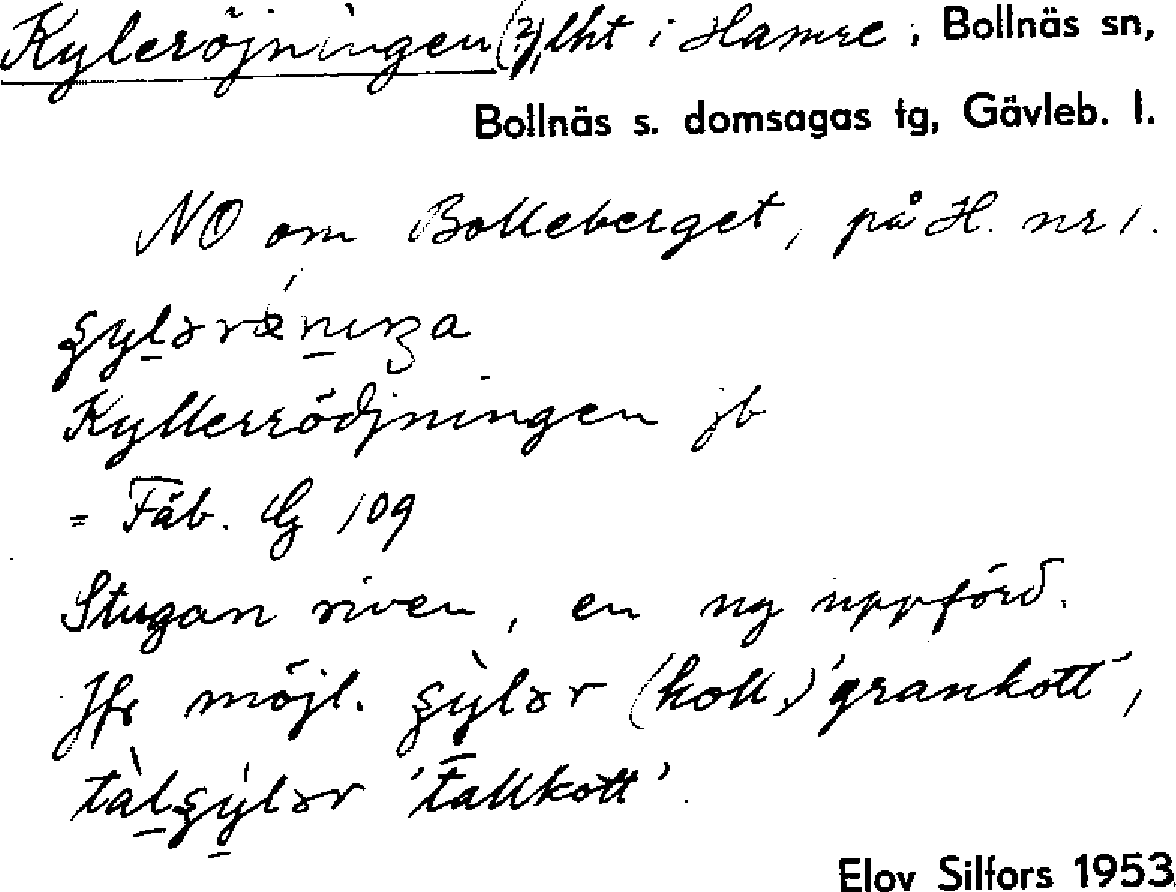 Kyleröjningen (?), lht i Hamre, Bollnäs sn,
Bollnäs s. domsagas tg, Gävleb. l.
NO om Bolleberget, på H. nr 1.
Kyllerrödjningen jb
= Fäb. G 109
Stugan riven, en ny uppförd.
Jfr möjl. (koll.) 'grankott',
'tallkott'.
Elov Silfors 1953